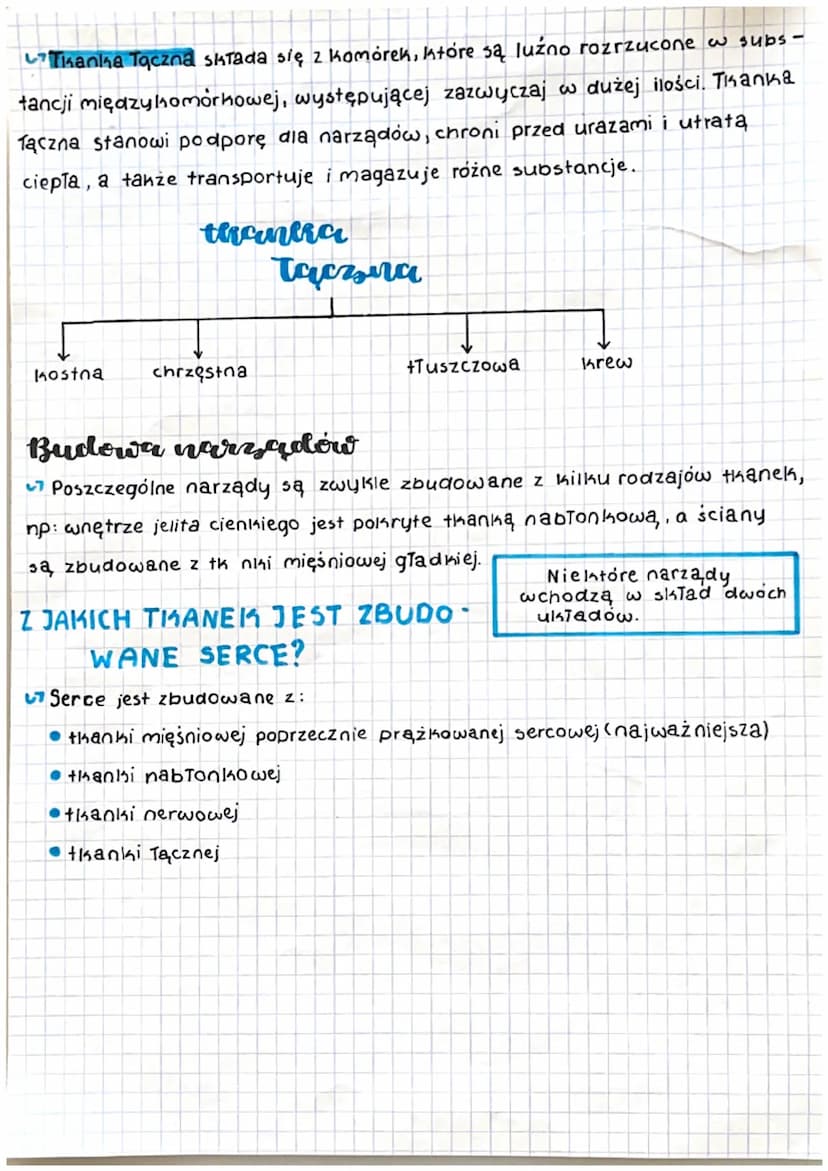 Tkanka łączna składa się z komórek, które są luźno rozrzucone w subs-
tancji międzykomórkowej, występującej zazwyczaj w dużej ilości. Tkanka
łączna stanowi podporę dla narządów, chroni przed urazami i utratą
ciepła, a także transportuje i magazuje różne substancje.
tkanka
łączna
kostna chrzęstna tłuszczowa krew
Budowa narządów
Poszczególne narządy są zwykle zbudowane z kilku rodzajów tkanek,
np: wnętrze jelita cienkiego jest pokryte tkanką nabłonkową, a ściany
są zbudowane z tk nki mięśniowej gładkiej.
Niektóre narządy
wchodzą w skład dwóch
układów.
Z JAKICH TKANEK JEST ZBUDO-
WANE SERCE?
Serce jest zbudowane z:
• tkanki mięśniowej poprzecznie prążkowanej sercowej (najważniejsza)
• tkanki nabłonkowej
• tkanki nerwowej
• tkanki łącznej